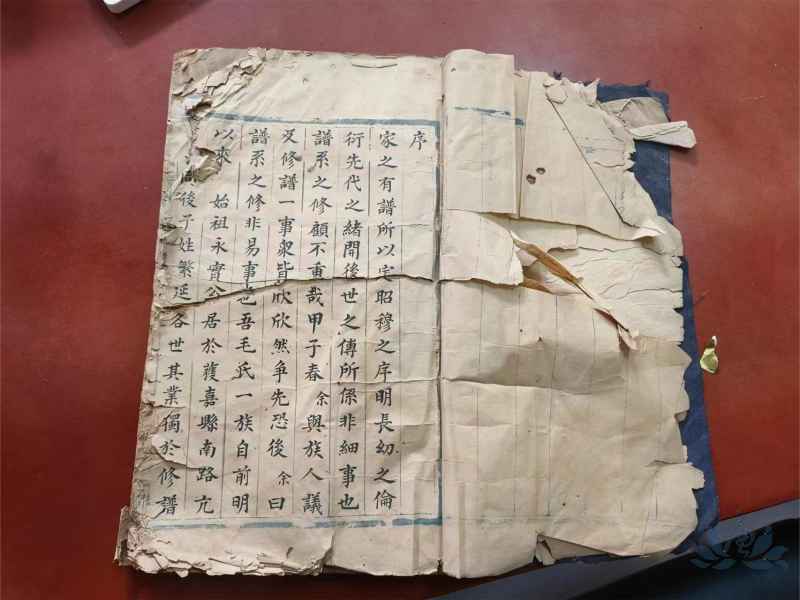 序
家之有譜所以定昭穆之序明長幼之倫
衍先代之緒開後世之傳所係非細事也
譜系之修顧不重哉甲子春余與族人議
及修譜一事衆皆欣欣然爭先恐後余曰
譜系之修非易事也吾毛氏一族自前明
以來始祖永實公居於獲嘉縣南路亢
後子姓繁延各世其業獨於修譜